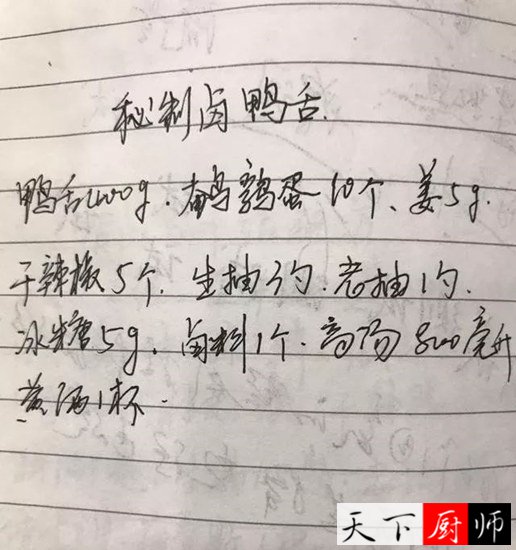 秘制卤鸭舌.
鸭舌400g.鹌鹑蛋10个、姜5g.
干辣椒5个.生抽3勺.老抽1勺.
冰糖5g.卤料1个.高汤800毫升
黄酒1杯.
天下厨师